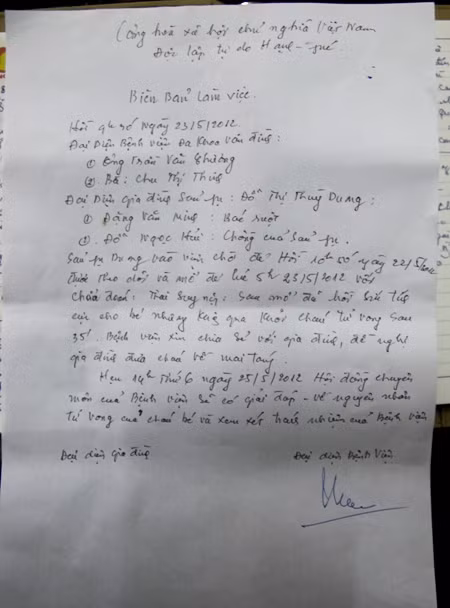 Cộng hoà xã hội chủ nghĩa Việt Nam
Độc lập tự do Hạnh - phúc
Biên Bản Làm việc.
Hồi giờ ngày 23/5/2012.
Đại Diện Bệnh viện Đa khoa Vân đình:
① Ông Trần Văn Thường
② Bà: Chu Thị Thuý
Đại Diện gia đình Sản fụ: Đỗ Thị Thuỳ Dung:
① Đặng Văn Minh: Bác ruột
②. Đỗ Ngọc Hải: Chồng của Sản fụ.
Sản fụ Dung vào viện chờ đẻ Hồi 10h50 ngày 22/5/2012
được theo dõi và mổ đẻ lúc 5h 23/5/2012 với
chẩn đoán: Thai Suy. Sau mổ đẻ hồi sức tích
cực cho bé nhưng không qua khỏi cháu tử vong sau
35'. Bệnh viện xin chia sẻ với gia đình, đề nghị
gia đình đưa cháu về mai táng.
Hẹn 14h thứ 6 ngày 25/5/2012 Hội đồng chuyên
môn của Bệnh viện sẽ có giải đáp - về nguyên nhân
tử vong của cháu bé và xem xét trách nhiệm của Bệnh viện
Đại diện gia đình
Đại diện Bệnh Viện